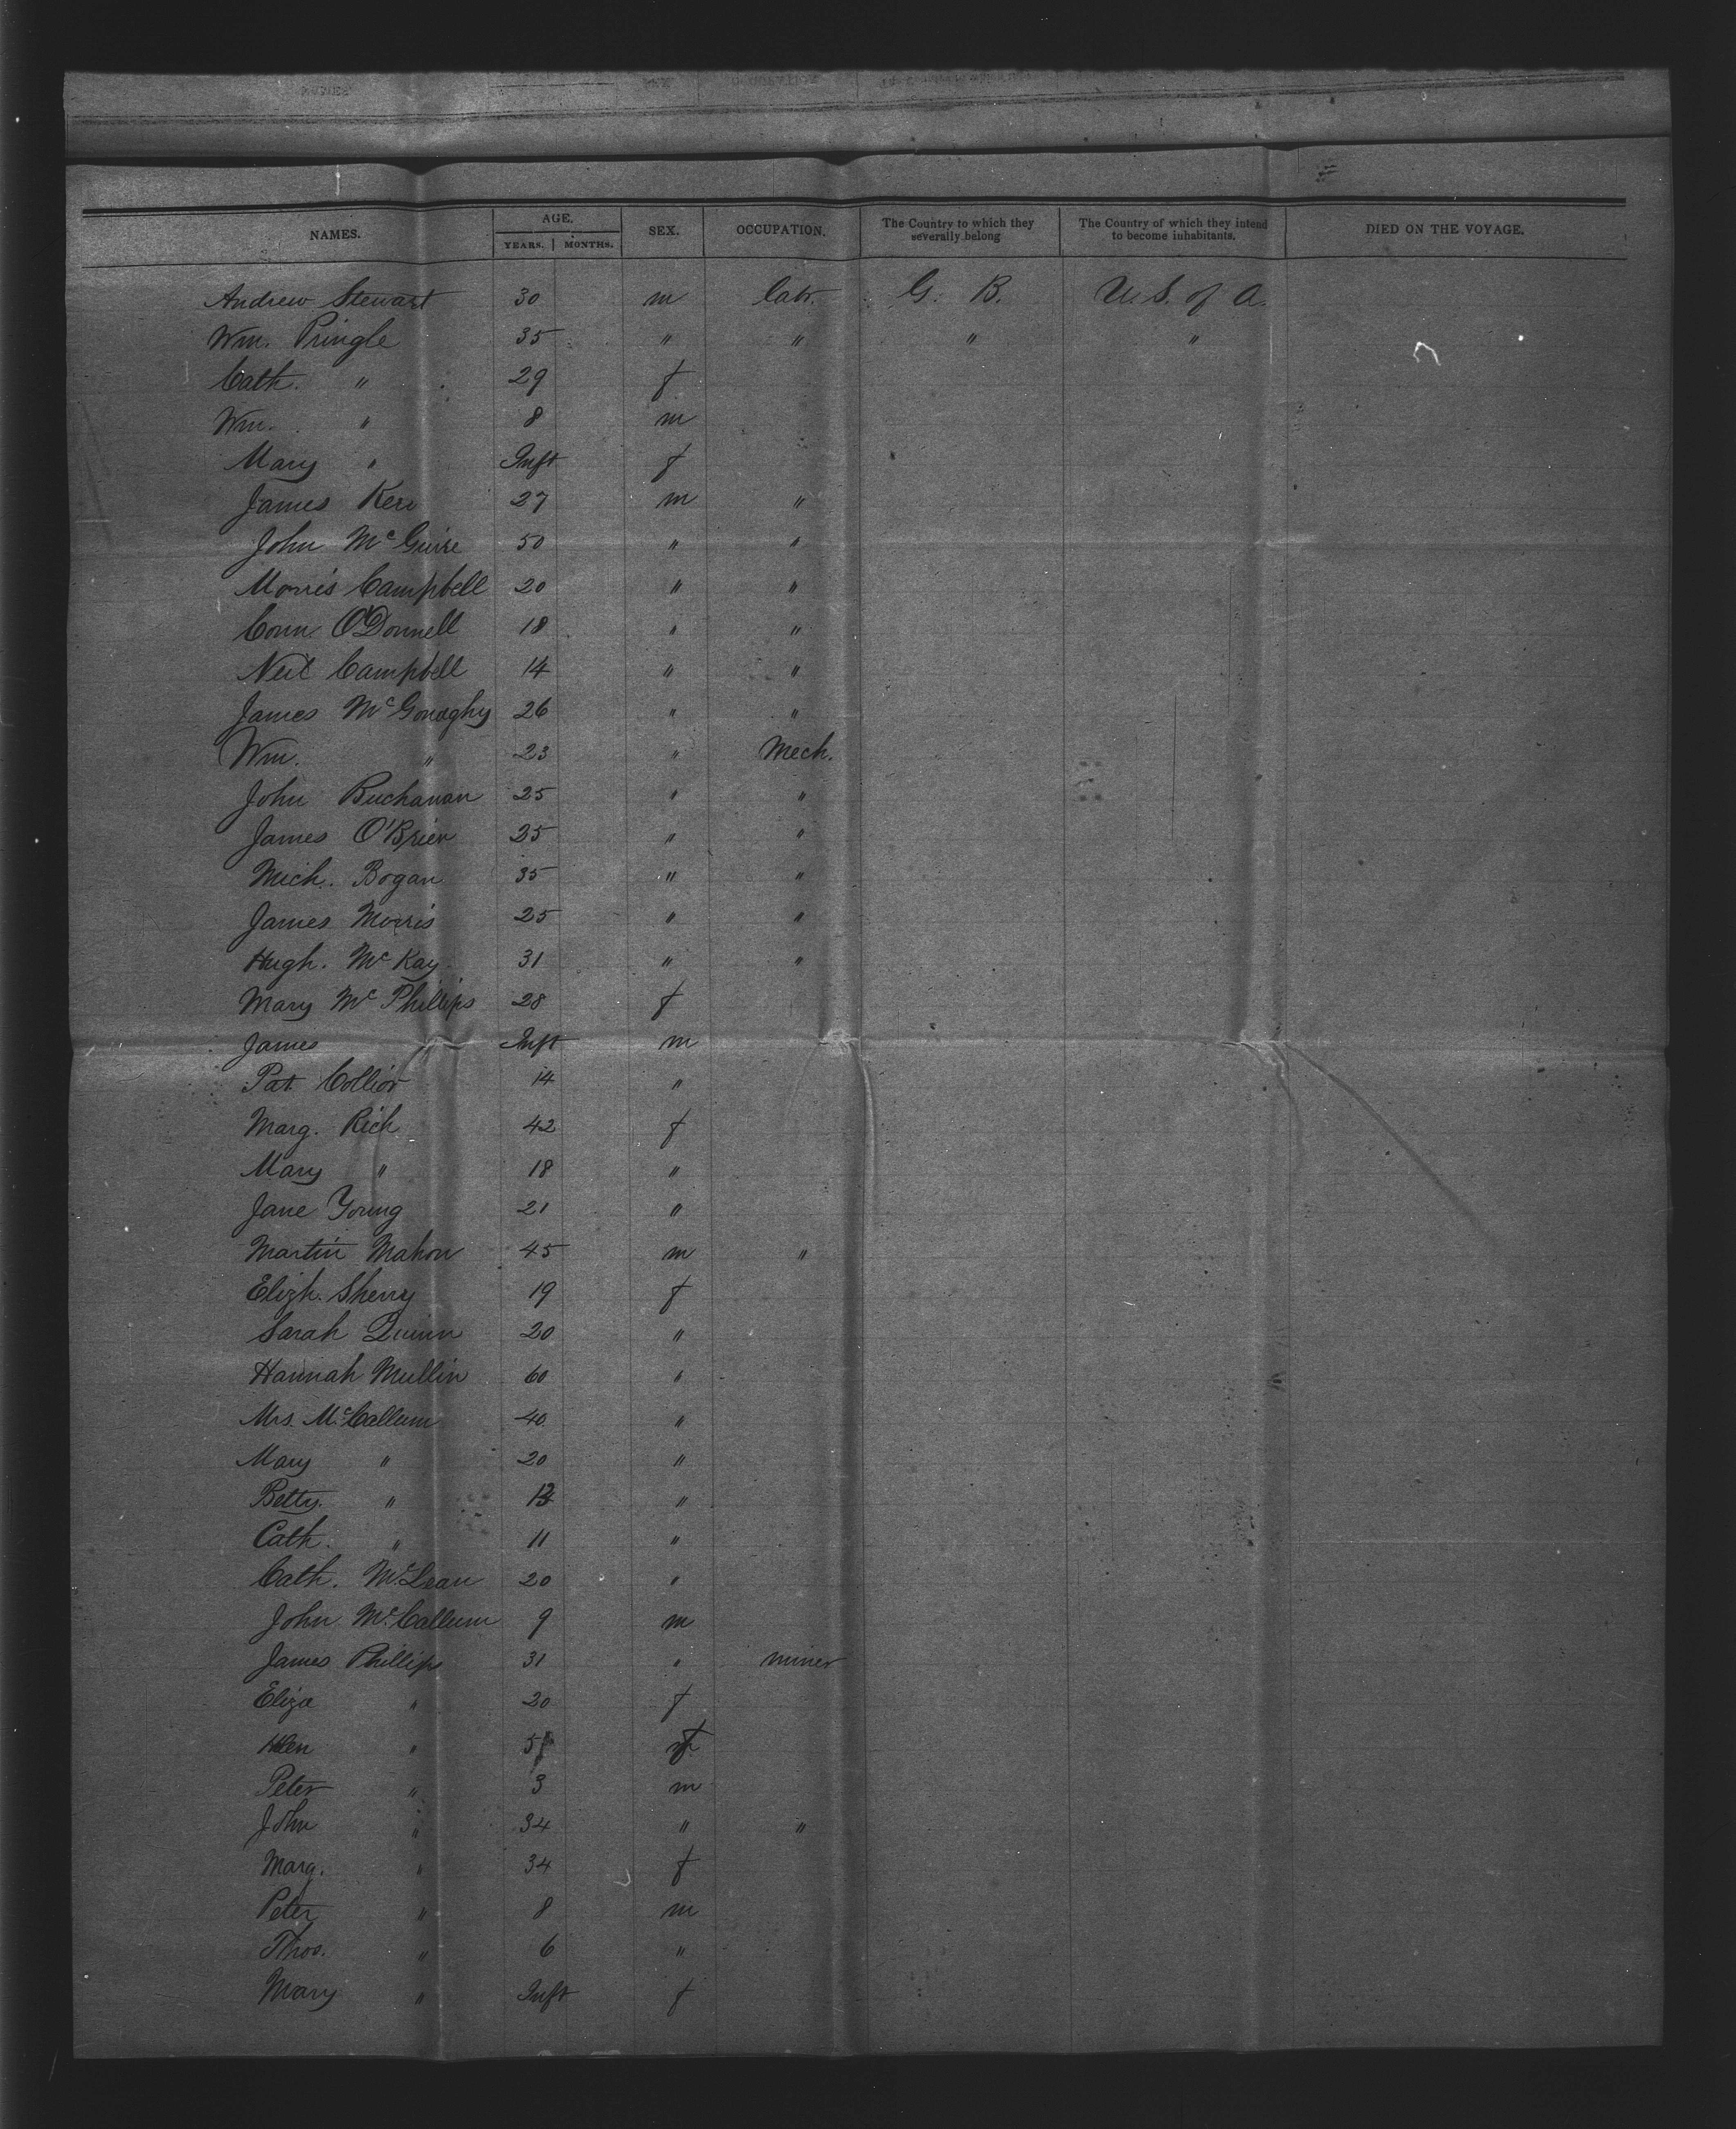 NAMES. AGE. YEARS. MONTHS. SEX. OCCUPATION. The Country to which they severally belong The Country of which they intend to become inhabitants. DIED ON THE VOYAGE.
Andrew Stewart 30 m Labr. G. B. U. S. of A.
Wm. Pringle 35 " " " "
Cath. " 29 f
Wm. " 8 m
Mary " Inft f
James Kerr 27 m "
John McGuire 50 " "
Morris Campbell 20 " "
Conn O'Donnell 18 " "
Neil Campbell 14 " "
James McGonaghy 26 " "
Wm. " 23 " Mech.
John Buchanan 25 " "
James O'Brien 25 " "
Mich. Bogan 35 " "
James Morris 25 " "
Hugh. McKay 31 " "
Mary McPhillips 28 f
James Inft m
Pat Collior 14 "
Marg. Rich 42 f
Mary " 18 "
Jane Young 21 "
Martin Mahon 45 m "
Elizh. Sherry 19 f
Sarah Quinn 20 "
Hannah Mullin 60 "
Mrs. McCallum 40 "
Mary " 20 "
Betty. " "
Cath. " 11 "
Cath. McLean 20 "
John McCallum 9 m
James Phillips 31 " miner
Eliza " 20 f
" f
Peter " 3 m
John " 34 " "
Marg. " 34 f
Peter " 8 m
Thos. " 6 "
Mary " Inft f